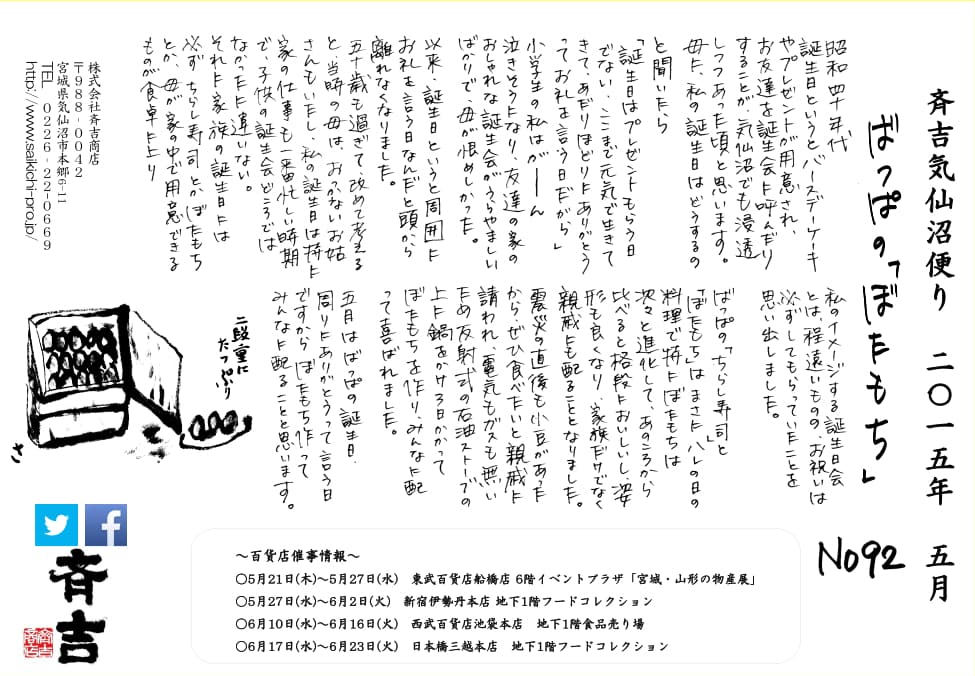 斉吉気仙沼便り　二〇一五年　五月
ばっぱの「ぼたもち」
No92
昭和四十年代
誕生日というとバースデーケーキ
やプレゼントが用意され、
お友達を誕生会に呼んだり
することが気仙沼でも浸透
しつつあった頃と思います。
母に、私の誕生日はどうするの
と聞いたら
「誕生日はプレゼントもらう日
でない、ここまで元気で生きて
きて、あだりほどりにありがとう
ってお礼を言う日だがら」
小学生の私はがーーーん
泣きそうになり、友達の家の
おしゃれな誕生会がうらやましい
ばかりで、母が恨めしかった。
以来、誕生日というと周囲に
お礼を言う日なんだと頭から
離れなくなりました。
五十歳も過ぎて、改めて考える
と、当時の母は、おっかないお姑
さんもいたし、私の誕生日は特に
家の仕事も一番忙しい時期
で、子供の誕生会どころでは
なかったに違いない。
それに家族の誕生日には
必ずちらし寿司とか、ぼたもち
とか、母が家の中で用意できる
ものが食卓に上り
私のイメージする誕生日会
とは、程遠いものの、お祝いは
必ずしてもらっていたことを
思い出しました。
ばっぱの「ちらし寿司と
「ぼたもち」はまさに「ハレの日の
料理」で特にぼたもちは
次々と進化して、あのころから
比べると格段においしいし、姿
形も良くなり、家族だけでなく
親戚にも配ることとなりました。
震災の直後も小豆があった
から、ぜひ食べたいと親戚に
請われ、電気もガスも無い
ため反射式の石油ストーブの
上に鍋をかけ3日かかって
ぼたもちを作り、みんなに配
って喜ばれました。
五月はばっぱの誕生日、
周りにありがとうって言う日
ですからぼたもち作って
みんなに配ることと思います。
二段重に
たっぷり
さ
株式会社斉吉商店
〒988-0042
宮城県気仙沼市本郷6-11
TEL 0226-22-0669
http://www.saikichi-pro.jp/
斉吉
～百貨店催事情報～
○5月21日(木)～5月27日(水)　東武百貨店船橋店 6階イベントプラザ「宮城・山形の物産展」
○5月27日(水)～6月2日(火)　新宿伊勢丹本店 地下1階フードコレクション
○6月10日(水)～6月16日(火)　西武百貨店池袋本店　地下1階食品売り場
○6月17日(水)～6月23日(火)　日本橋三越本店　地下1階フードコレクション